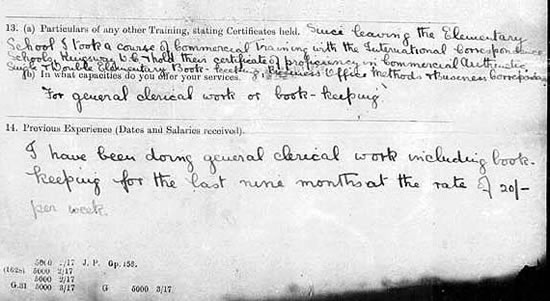 13. (a) Particulars of any other Training, stating Certificates held. Since leaving the Elementary
School I took a course of commercial training with the International Correspondence
Schools, Kingsway W.C. & hold their certificate of proficiency in Commercial Arithmetic
Single & Double Elementary Book-keeping, Business Office Methods & Business
(b) In what capacities do you offer your services.
For general clerical work or book-keeping
14. Previous Experience (Dates and Salaries received).
I have been doing general clerical work including book-
keeping for the last nine months at the rate of 20/-
per week.
5000 1/17 J. P. Gp. 153.
(1628) 5000 2/17
5000 2/17
G.31 5000 3/17 G 5000 3/17